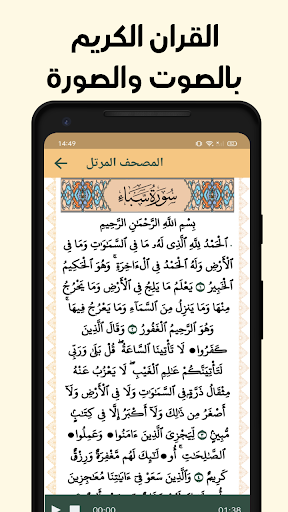 القران الكريم
بالصوت والصورة
14:49
المصحف المرتل
سورة سبإ
بِسْمِ اللَّهِ الرَّحْمَٰنِ الرَّحِيمِ
ٱلْحَمْدُ لِلَّهِ ٱلَّذِى لَهُۥ مَا فِى ٱلسَّمَٰوَٰتِ وَمَا فِى
ٱلْأَرْضِ وَلَهُ ٱلْحَمْدُ فِى ٱلْءَاخِرَةِ ۚ وَهُوَ ٱلْحَكِيمُ
ٱلْخَبِيرُ ١ يَعْلَمُ مَا يَلِجُ فِى ٱلْأَرْضِ وَمَا يَخْرُجُ
مِنْهَا وَمَا يَنزِلُ مِنَ ٱلسَّمَآءِ وَمَا يَعْرُجُ فِيهَا ۚ
وَهُوَ ٱلرَّحِيمُ ٱلْغَفُورُ ٢ وَقَالَ ٱلَّذِينَ
كَفَرُوا۟ لَا تَأْتِينَا ٱلسَّاعَةُ ۖ قُلْ بَلَىٰ وَرَبِّى
لَتَأْتِيَنَّكُمْ عَٰلِمِ ٱلْغَيْبِ ۖ لَا يَعْزُبُ عَنْهُ
مِثْقَالُ ذَرَّةٍ فِى ٱلسَّمَٰوَٰتِ وَلَا فِى ٱلْأَرْضِ وَلَآ
أَصْغَرُ مِن ذَٰلِكَ وَلَآ أَكْبَرُ إِلَّا فِى كِتَٰبٍ
مُّبِينٍ ٣ لِّيَجْزِىَ ٱلَّذِينَ ءَامَنُوا۟ وَعَمِلُوا۟
ٱلصَّٰلِحَٰتِ ۚ أُو۟لَٰٓئِكَ لَهُم مَّغْفِرَةٌ وَرِزْقٌ
كَرِيمٌ ٤ وَٱلَّذِينَ سَعَوْ فِىٓ ءَايَٰتِنَا مُعَٰجِزِينَ
00:00 01:38